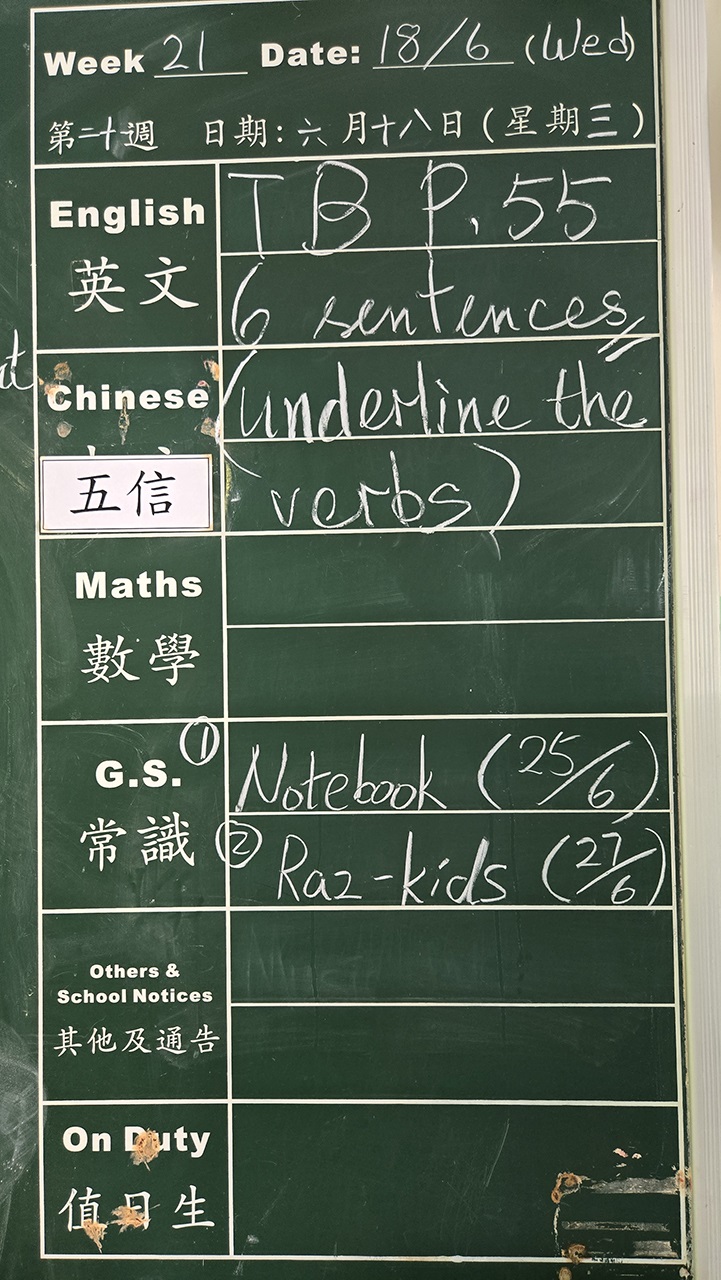 Week 21 Date: 18/6 (Wed)
第二十週 日期:六月十八日(星期三)
English
英文
TB P.55
6 sentences
Chinese
五信
(underline the
verbs)
Maths
數學
G.S.
常識
① Notebook (25/6)
② Raz-kids (27/6)
Others &
School Notices
其他及通告
On Duty
值日生